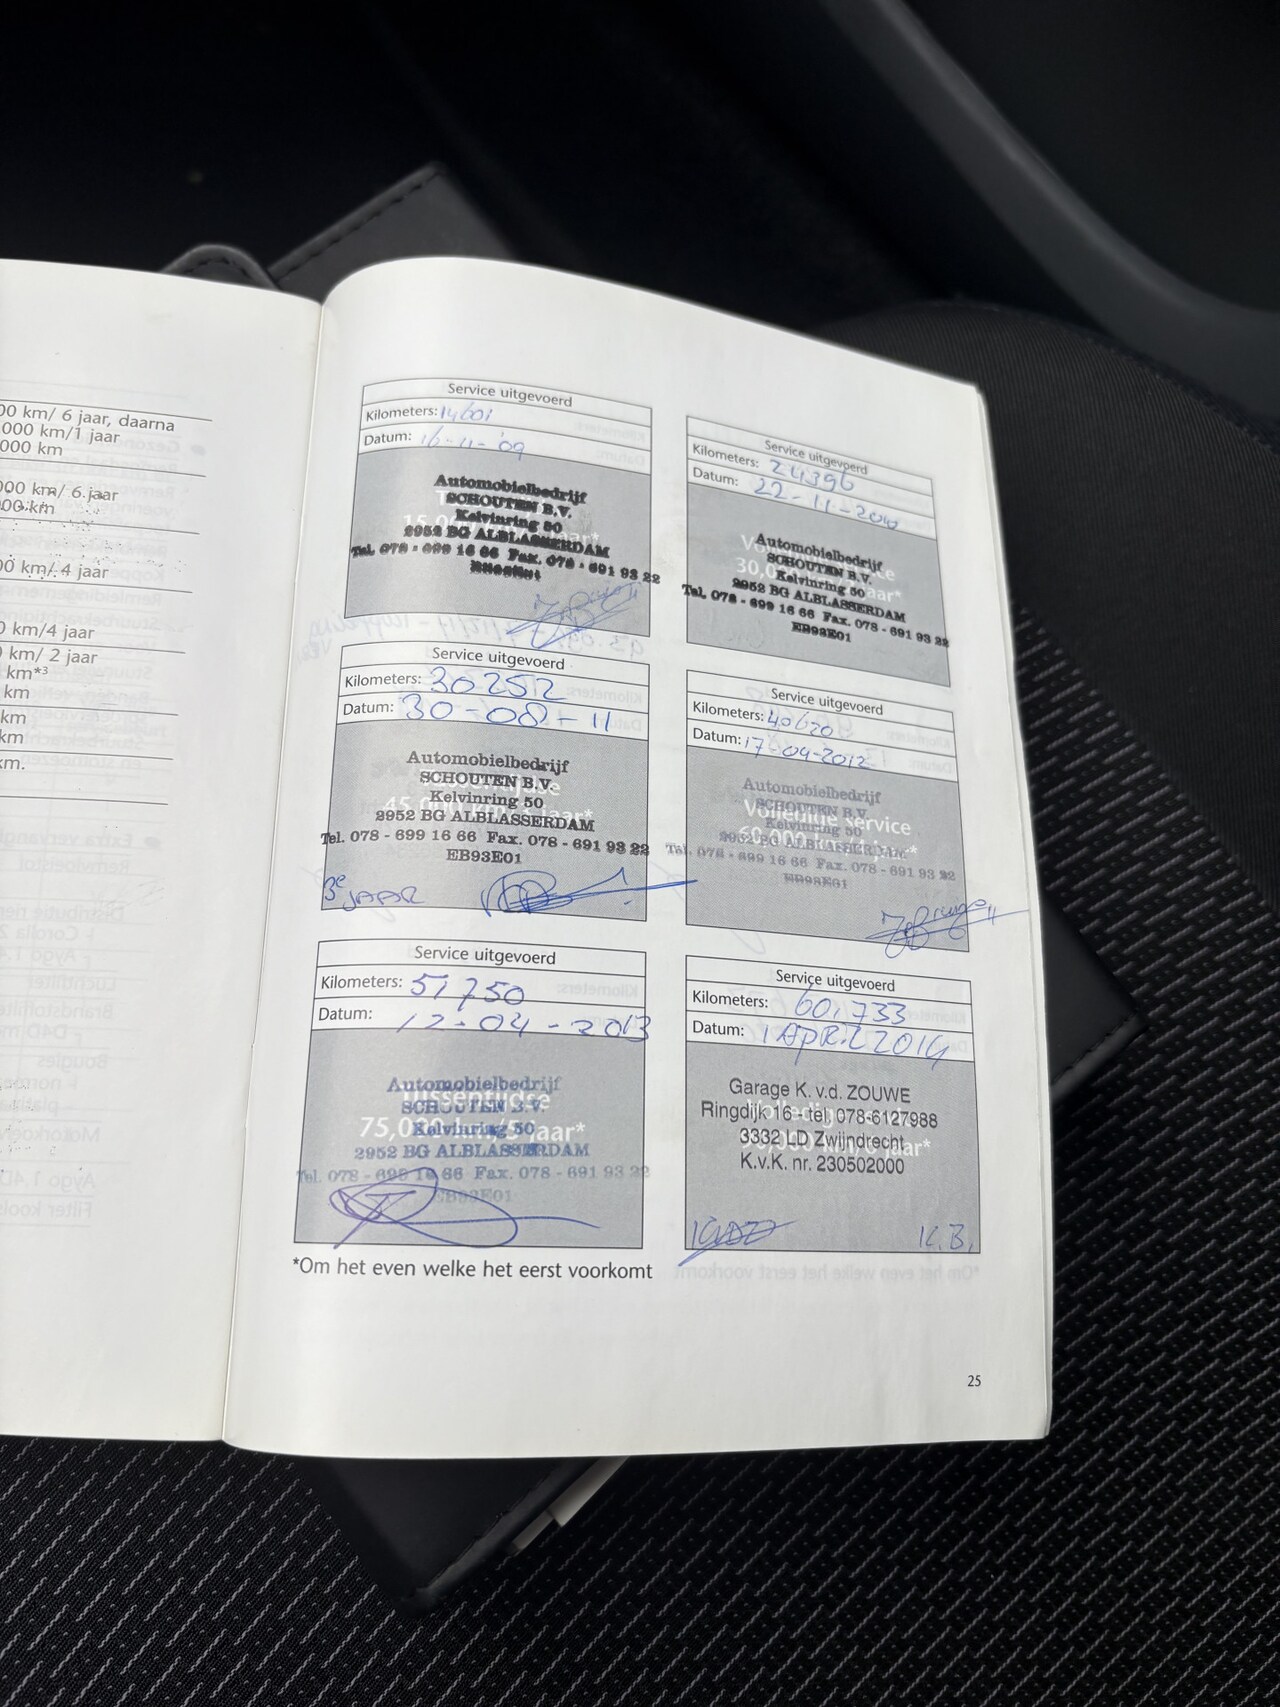 00 km/ 6 jaar, daarna
000 km/1 jaar
000 km
000 km/ 6 jaar
00 km
00 km/ 4 jaar
0 km/4 jaar
km/ 2 jaar
km*3
km
km
km
km.
Service uitgevoerd
Kilometers: 14601
Datum: 16-11-'09
Automobielbedrijf
SCHOUTEN B.V.
Kelvinring 50
15,000
2952 BG ALBLASSERDAM
Tel. 078 - 699 16 66 Fax. 078 - 691 93 22
Service uitgevoerd
Kilometers: 24396
Datum: 22-11-2010
Automobielbedrijf
SCHOUTEN B.V.
Kelvinring 50
30,000
jaar*
2952 BG ALBLASSERDAM
Tel. 078 - 699 16 66 Fax. 078 - 691 93 22
EB93E01
Service uitgevoerd
Kilometers: 30252
Datum: 30-08-11
Automobielbedrijf
SCHOUTEN B.V.
Kelvinring 50
45,000 km/3 jaar*
2952 BG ALBLASSERDAM
Tel. 078 - 699 16 66 Fax. 078 - 691 93 22
EB93E01
3e JAAR
Service uitgevoerd
Kilometers: 40620
Datum: 17-04-2012
Automobielbedrijf
SCHOUTEN B.V.
Volledige service
Kelvinring 50
60,000 km/4 jaar*
2952 BG ALBLASSERDAM
Tel. 078 - 699 16 66 Fax. 078 - 691 93 22
EB93E01
Service uitgevoerd
Kilometers: 51,750
Datum: 12-04-2013
Automobielbedrijf
Tussentijdse
SCHOUTEN B.V.
Kelvinring 50
75,000 km/5 jaar*
2952 BG ALBLASSERDAM
Tel. 078 - 699 16 66 Fax. 078 - 691 93 22
EB93E01
Service uitgevoerd
Kilometers: 60,733
Datum: 1 APRIL 2014
Garage K. v.d. ZOUWE
Ringdijk 16 - tel. 078-6127988
3332 LD Zwijndrecht
jaar*
K.v.K. nr. 230502000
K.B.
*Om het even welke het eerst voorkomt
25